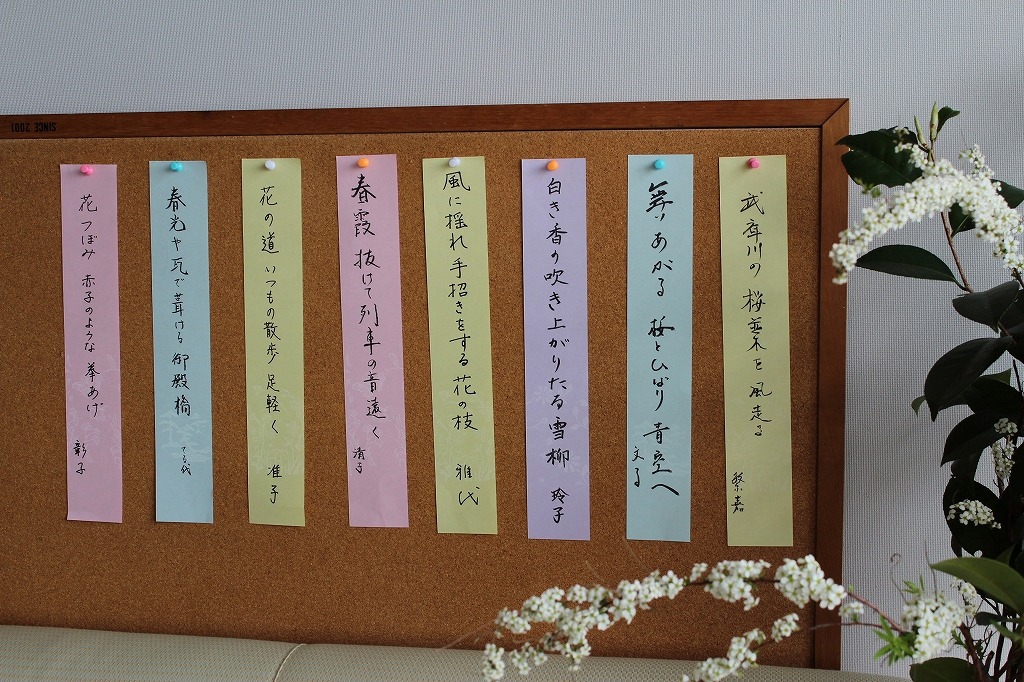 武庫川の 桜並木を 風走る
繁嘉
舞いあがる 桜とひばり 青空へ
文子
白き香の吹き上がりたる雪柳
玲子
風に揺れ手招きをする花の枝
雅代
春霞 抜けて列車の音遠く
清子
花の道 いつもの散歩 足軽く
准子
春光や瓦で葺ける御殿橋
てる代
花つぼみ 赤子のような 拳あげ
彰子
SINCE 2001